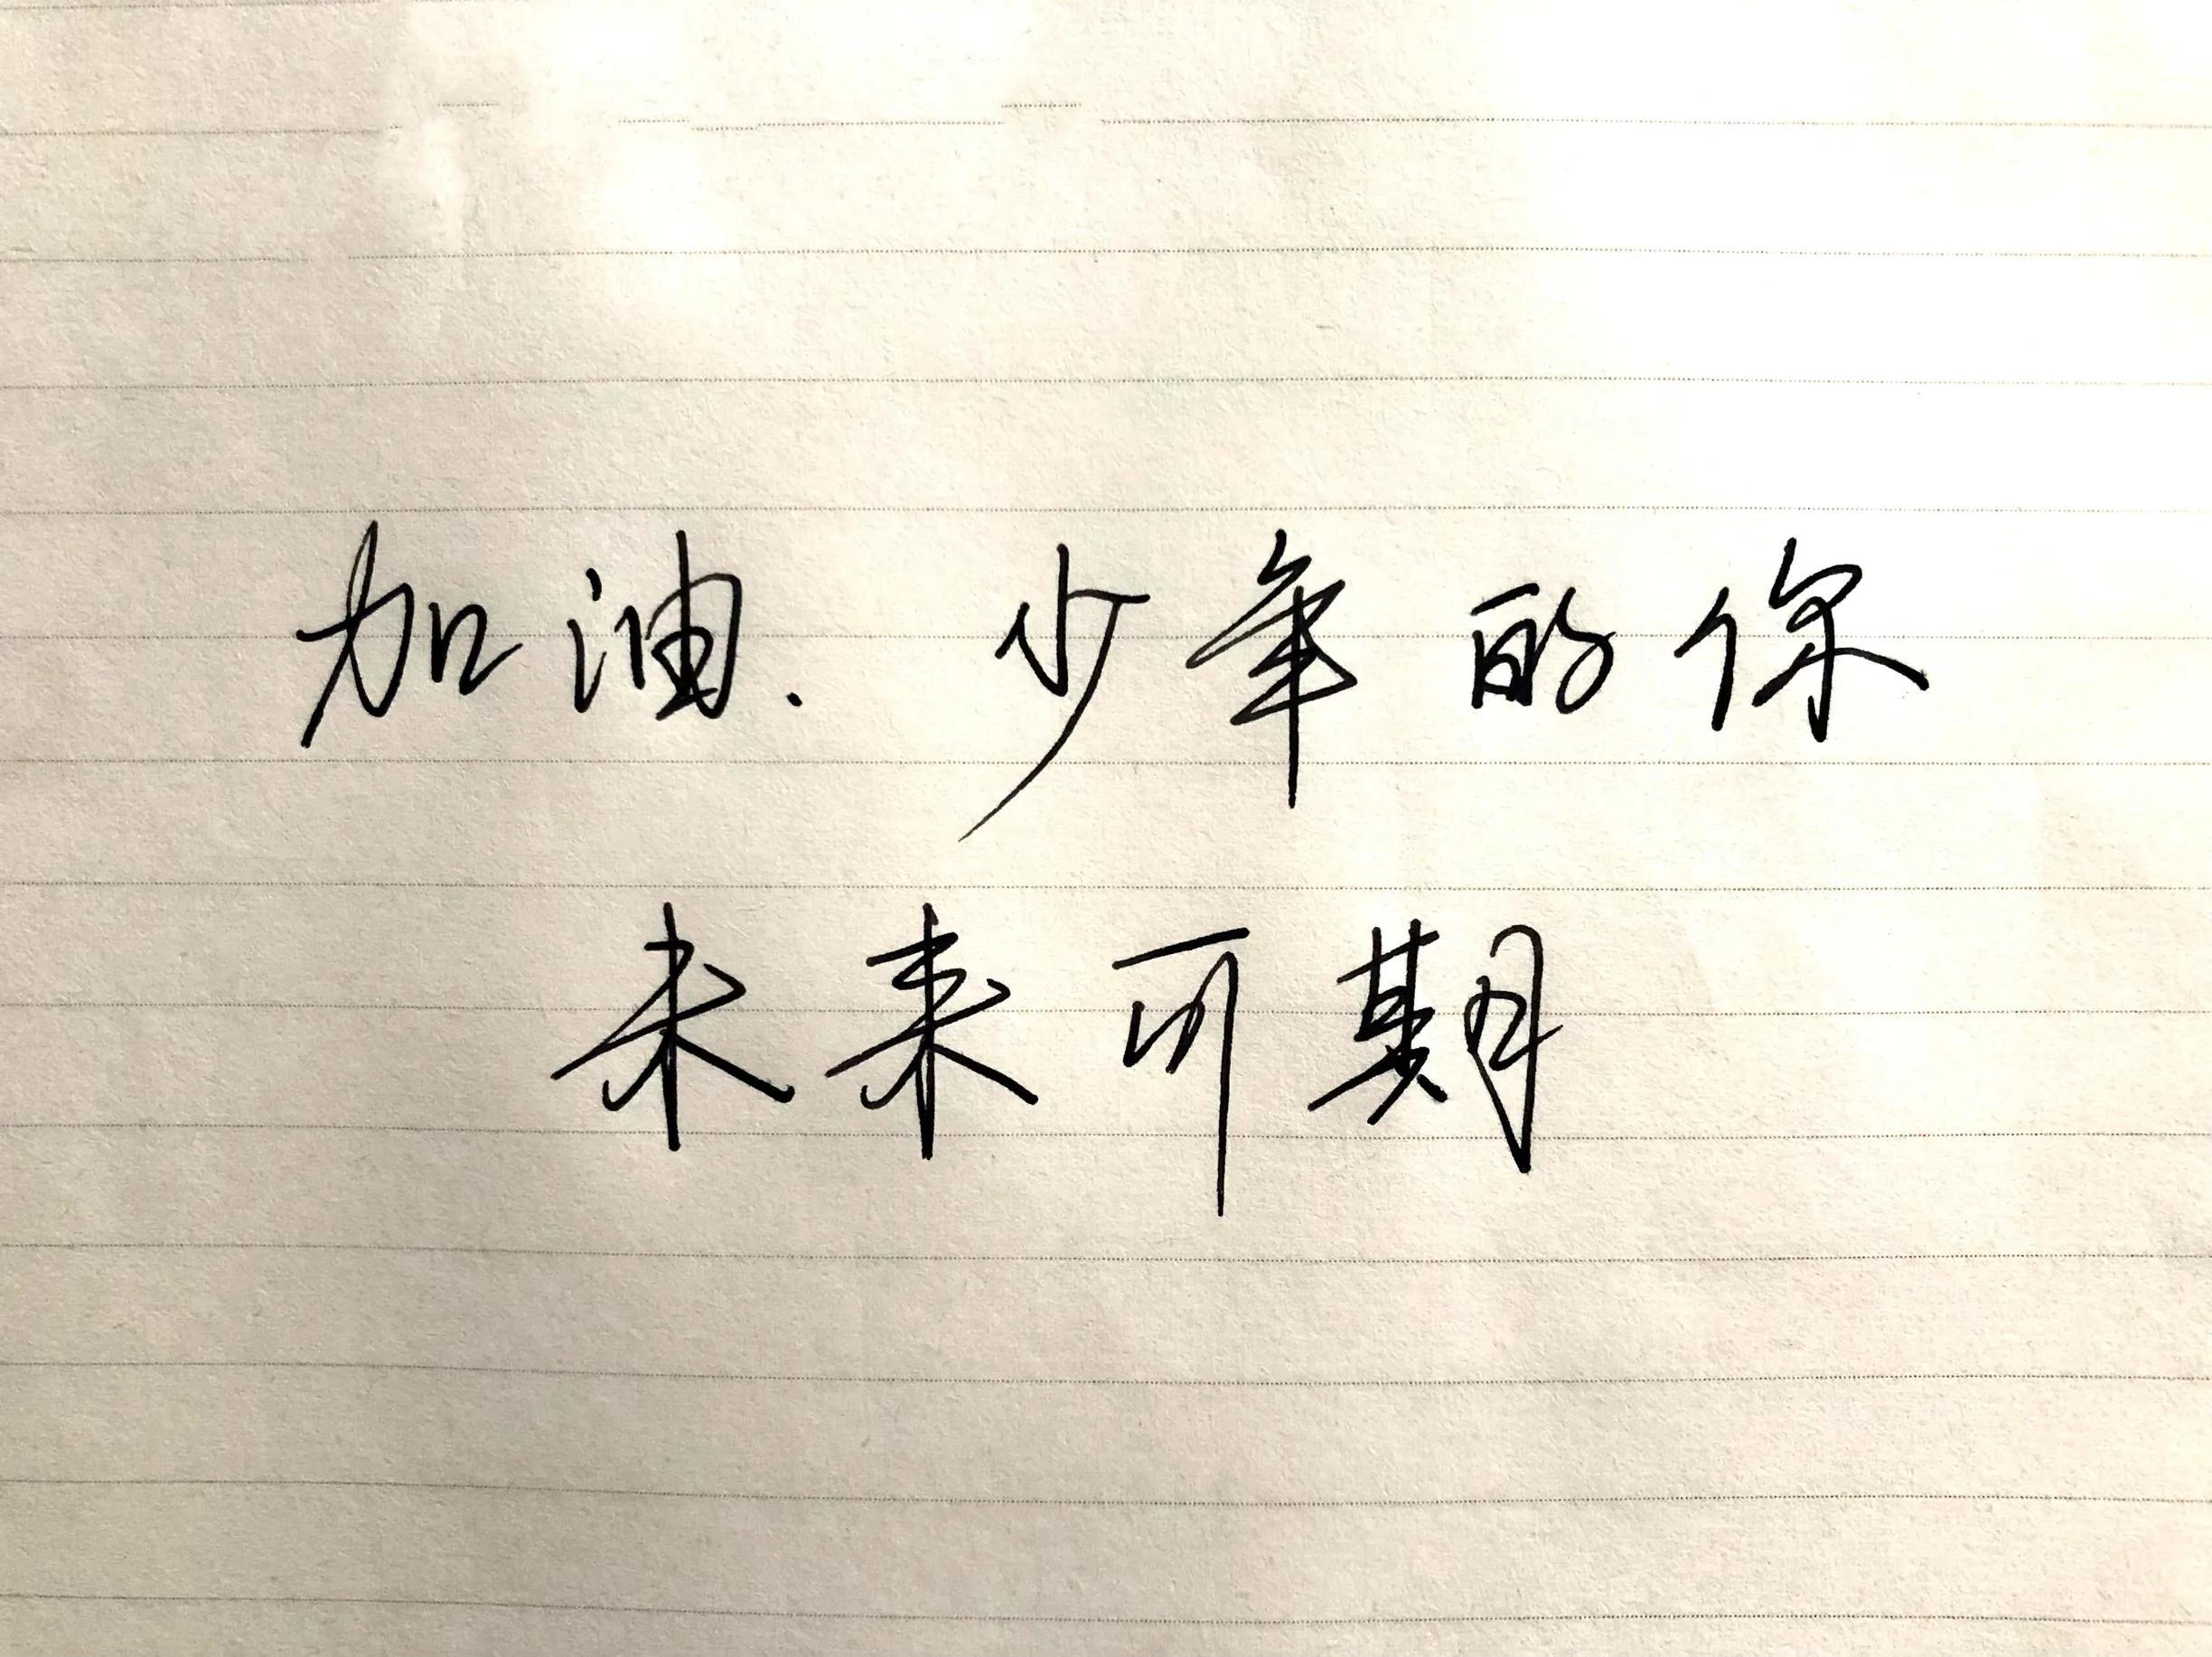 加油.少年的你
未来可期